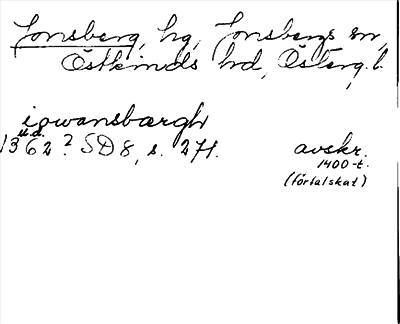 Jonsberg, hg, Jonsbergs sn,
Östkinds hd, Österg. l.
iowansbærgh
u.d.
1362? SD 8, s. 271. avskr.
1400-t.
(förfalskat)